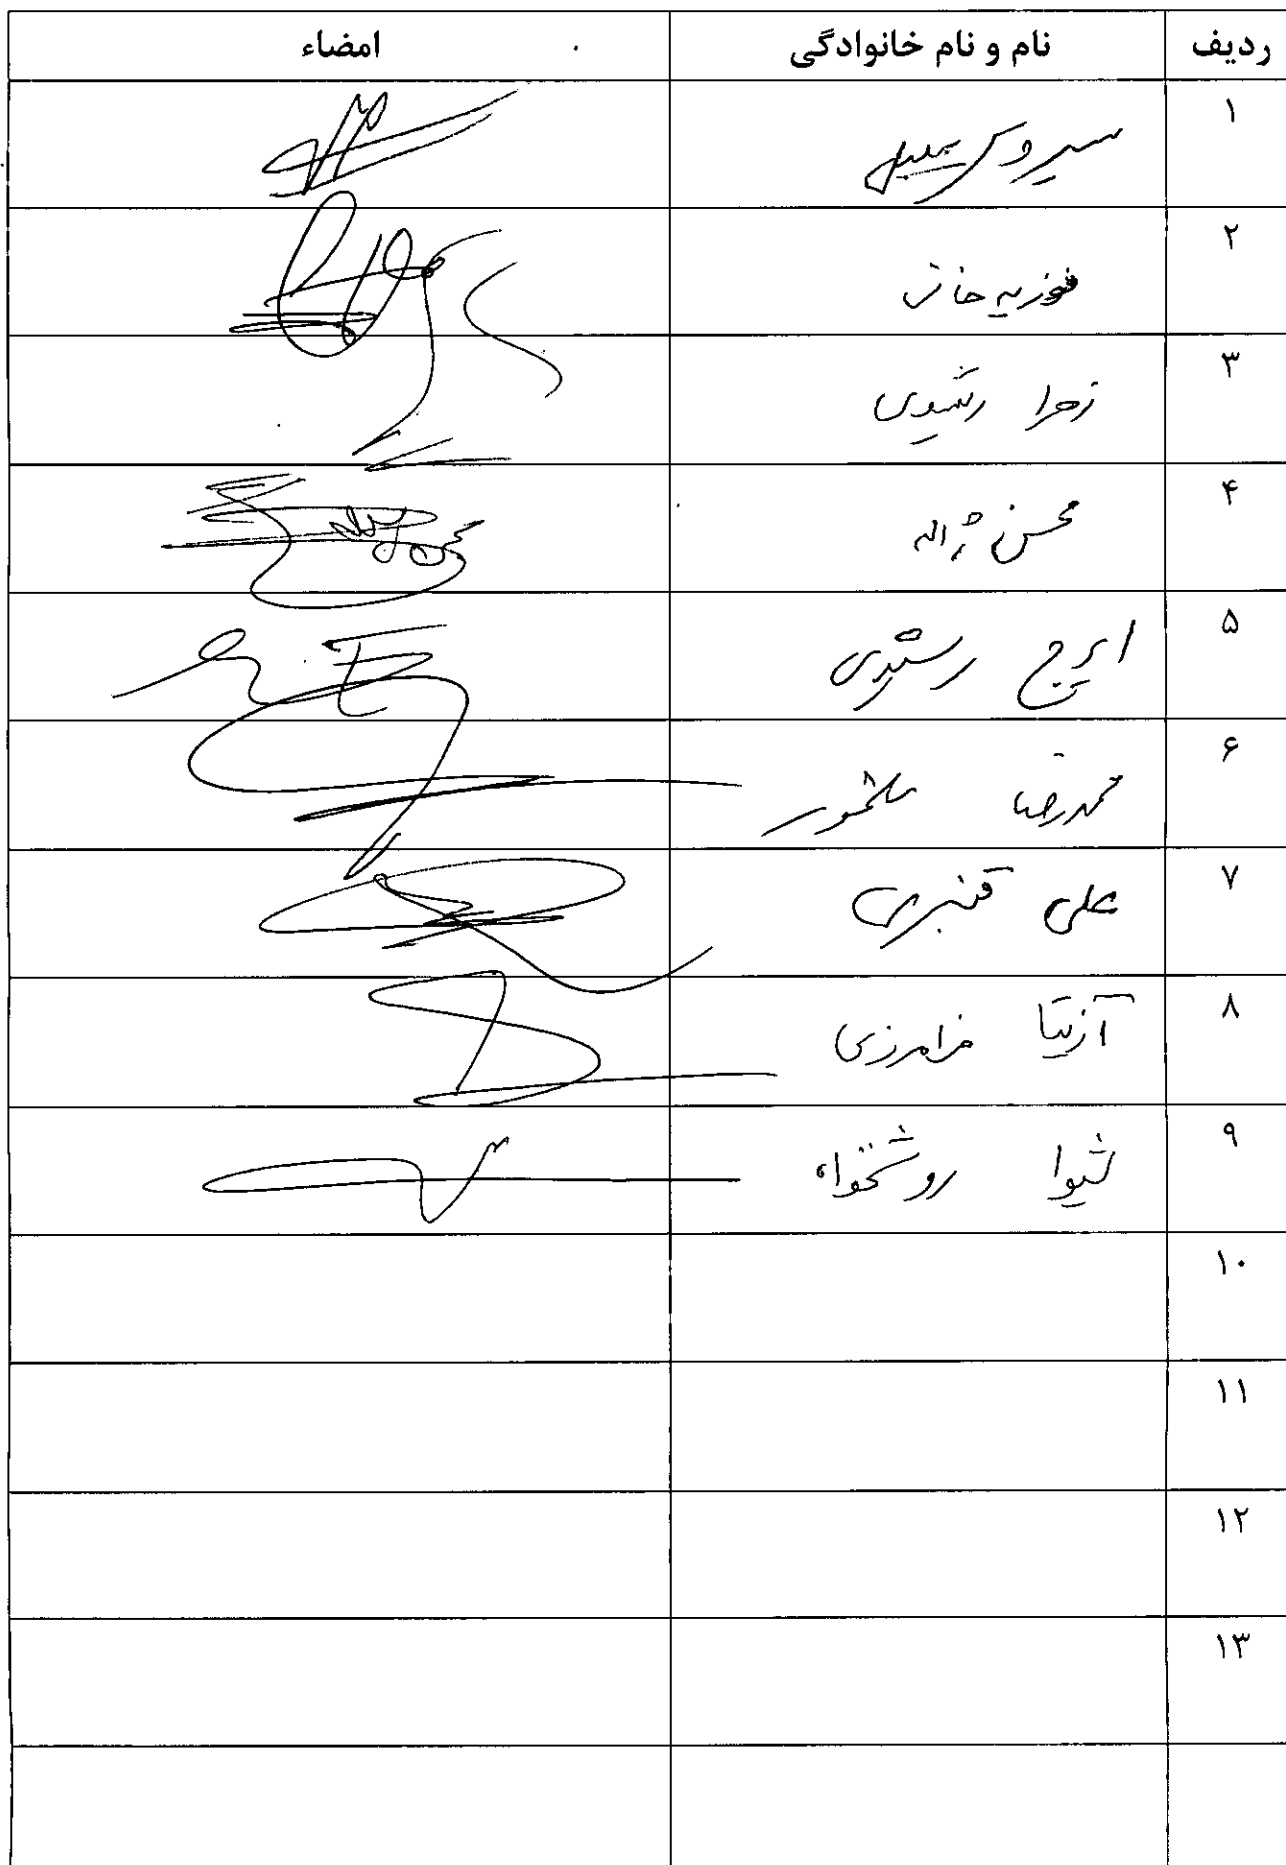 ردیف نام و نام خانوادگی امضاء
۱ سیروس
۲ فوزیه خانی
۳ زهرا رشیدی
۴ محسن ژاله
۵ ایرج رشیدی
۶ محمدرضا
۷ علی قنبری
۸ آزیتا فرامرزی
۹ شیوا روشنخواه
۱۰
۱۱
۱۲
۱۳